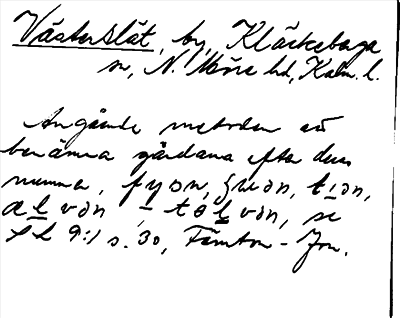 Västerslät, by, Kläckeberga
sn, N. Möre hd, Kalm. l.
Angående metoden att
benämna gårdarna efter deras
numma, fyɔn,
ælvɔn, - tɔlvɔn, se
9:1 s. 30, Tämton - Jon.